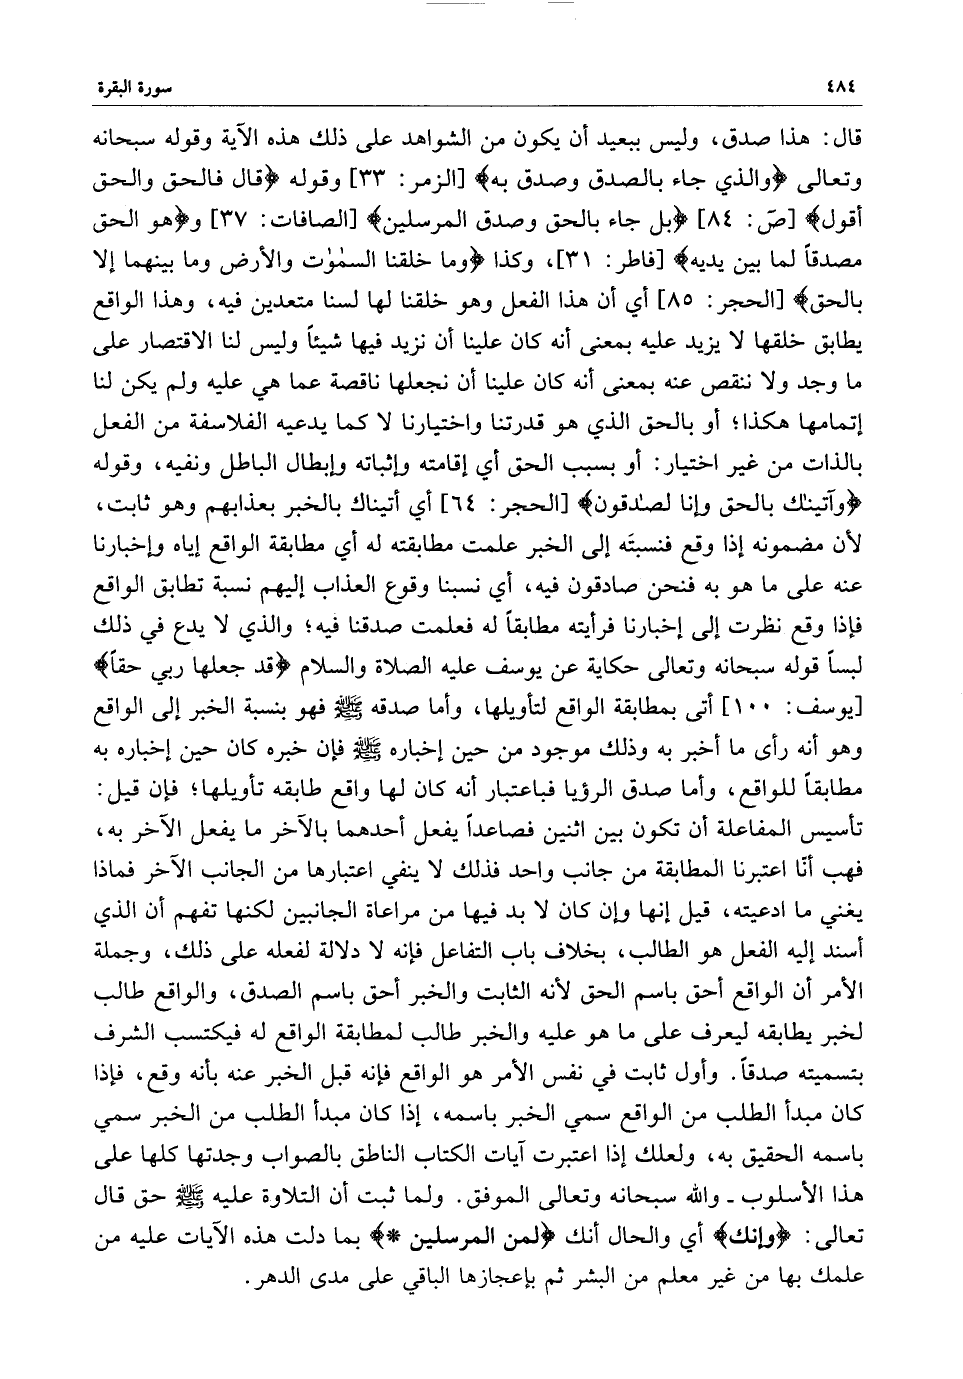 ٤٨٤ سورة البقرة
قال: هذا صدق، وليس ببعيد أن يكون من الشواهد على ذلك هذه الآية وقوله سبحانه
وتعالى ﴿والذي جاء بالصدق وصدق به﴾ [الزمر: ٣٣] وقوله ﴿قال فالحق والحق
أقول﴾ [صٓ: ٨٤] ﴿بل جاء بالحق وصدق المرسلين﴾ [الصافات: ٣٧] و﴿هو الحق
مصدقاً لما بين يديه﴾ [فاطر: ٣١]، وكذا ﴿وما خلقنا السمٰوٰت والأرض وما بينهما إلا
بالحق﴾ [الحجر: ٨٥] أي أن هذا الفعل وهو خلقنا لها لسنا متعدين فيه، وهذا الواقع
يطابق خلقها لا يزيد عليه بمعنى أنه كان علينا أن نزيد فيها شيئاً وليس لنا الاقتصار على
ما وجد ولا ننقص عنه بمعنى أنه كان علينا أن نجعلها ناقصة عما هي عليه ولم يكن لنا
إتمامها هكذا؛ أو بالحق الذي هو قدرتنا واختيارنا لا كما يدعيه الفلاسفة من الفعل
بالذات من غير اختيار: أو بسبب الحق أي إقامته وإثباته وإبطال الباطل ونفيه، وقوله
﴿وآتينٰك بالحق وإنا لصٰدقون﴾ [الحجر: ٦٤] أي أتيناك بالخبر بعذابهم وهو ثابت،
لأن مضمونه إذا وقع فنسبتَه إلى الخبر علمت مطابقته له أي مطابقة الواقع إياه وإخبارنا
عنه على ما هو به فنحن صادقون فيه، أي نسبنا وقوع العذاب إليهم نسبة تطابق الواقع
فإذا وقع نظرت إلى إخبارنا فرأيته مطابقاً له فعلمت صدقنا فيه؛ والذي لا يدع في ذلك
لبساً قوله سبحانه وتعالى حكاية عن يوسف عليه الصلاة والسلام ﴿قد جعلها ربي حقاً﴾
[يوسف: ١٠٠] أتى بمطابقة الواقع لتأويلها، وأما صدقه ﷺ فهو بنسبة الخبر إلى الواقع
وهو أنه رأى ما أخبر به وذلك موجود من حين إخباره ﷺ فإن خبره كان حين إخباره به
مطابقاً للواقع، وأما صدق الرؤيا فباعتبار أنه كان لها واقع طابقه تأويلها؛ فإن قيل:
تأسيس المفاعلة أن تكون بين اثنين فصاعداً يفعل أحدهما بالآخر ما يفعل الآخر به،
فهب أنّا اعتبرنا المطابقة من جانب واحد فذلك لا ينفي اعتبارها من الجانب الآخر فماذا
يغني ما ادعيته، قيل إنها وإن كان لا بد فيها من مراعاة الجانبين لكنها تفهم أن الذي
أسند إليه الفعل هو الطالب، بخلاف باب التفاعل فإنه لا دلالة لفعله على ذلك، وجملة
الأمر أن الواقع أحق باسم الحق لأنه الثابت والخبر أحق باسم الصدق، والواقع طالب
لخبر يطابقه ليعرف على ما هو عليه والخبر طالب لمطابقة الواقع له فيكتسب الشرف
بتسميته صدقاً. وأول ثابت في نفس الأمر هو الواقع فإنه قبل الخبر عنه بأنه وقع، فإذا
كان مبدأ الطلب من الواقع سمي الخبر باسمه، إذا كان مبدأ الطلب من الخبر سمي
باسمه الحقيق به، ولعلك إذا اعتبرت آيات الكتاب الناطق بالصواب وجدتها كلها على
هذا الأسلوب ـ والله سبحانه وتعالى الموفق. ولما ثبت أن التلاوة عليه ﷺ حق قال
تعالى: ﴿وإنك﴾ أي والحال أنك ﴿لمن المرسلين *﴾ بما دلت هذه الآيات عليه من
علمك بها من غير معلم من البشر ثم بإعجازها الباقي على مدى الدهر.